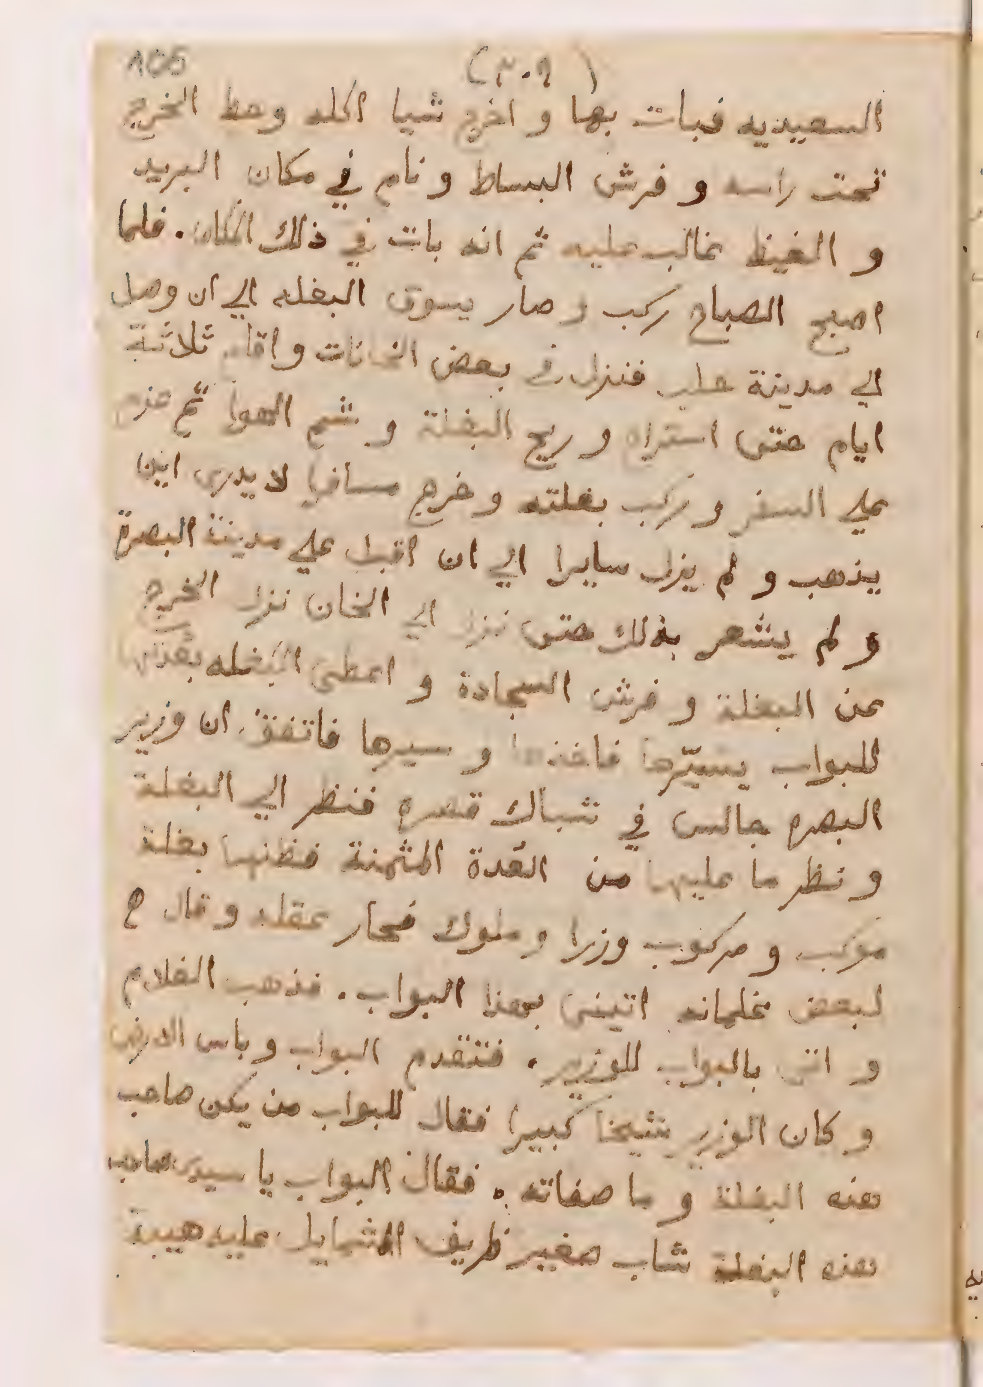 105
(٣٠٩)
السعيديه فبات بها و اخرج شيا اكله وحط الخرج
تحت راسه و فرش البساط و نام في مكان البريد
و الغيظ غالب عليه ثم انه بات في ذلك المكان. فلما
اصبح الصباح ركب و صار يسوق البغله الي ان وصل
الي مدينة حلب فنزل في بعض الخانات واقام ثلاثة
ايام حتى استراح و ريح البغلة و شم الهوا ثم عزم
علي السفر و ركب بغلته و خرج مسافرا لا يدرى اين
يذهب و لم يزل سايرا الي ان اقبل علي مدينة البصرة
و لم يشعر بذلك حتى نزل الي الخان نزل الخرج
عن البغلة و فرش السجادة و اعطى البغله بعدتها
للبواب يسيّرها فاخذها و سيرها فاتفق ان وزير
البصره جالس في شباك قصره فنظر الي البغلة
و نظر ما عليها من العُدة المثمنة فظنها بغلة
موكب و مركوب وزرا و ملوك فحار عقله و قال ح
لبعض غلمانه اتينى بهذا البواب. فذهب الغلام
و اتى بالبواب للوزير. فتقدم البواب و باس الارض
و كان الوزير شيخا كبيرا فقال للبواب من يكن صاحب
هذه البغلة و ما صفاته. فقال البواب يا سيدى صاحب
هذه البغلة شاب صغير ظريف الشمايل عليه هيبة